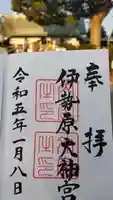 奉拝
伊勢原大神宮
令和五年一月八日